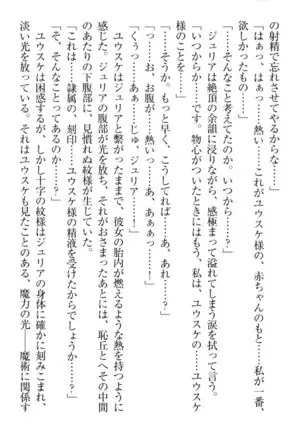 の射精で忘れさせてやるからな……」
「はぁっ、はぁっ……熱い……これがユウスケ様の、赤ちゃんのもと……私が一番、
欲しかったもの……」
「……そんなこと考えてたのか。いつから……？」
ジュリアは絶頂の余韻に浸りながら、感極まって溢れてしまう涙を拭って言う。
「いつからか……です。物心がついたときにはもう、私は、ユウスケの……ユウスケ
様のことを……」
「……そうか。もっと早く、こうしてれば……あ、あれ……？」
「……っ……お、お腹が……熱いっ……あぁっ……！」
「くぅっ……あぁ……じゅ、ジュリア……！」
ユウスケはジュリアと繋がったままで、彼女の胎内が燃えるような熱を持つように
感じた。ジュリアの下腹部が光を放ち、それがおさまったあとには、恥丘とへその中間
のあたりの下腹部に、見慣れぬ紋様が生じていた。
「これは……隷属の、刻印……ユウスケ様の精液を受けたからでしょうか……？」
「そ、そんなことってあるのか……？」
ユウスケは困惑するが、しかし十字の紋様はジュリアの身体に確かに刻みこまれ、
淡い光を放っている。それはユウスケも見たことのある、魔力の光――魔術に関係す